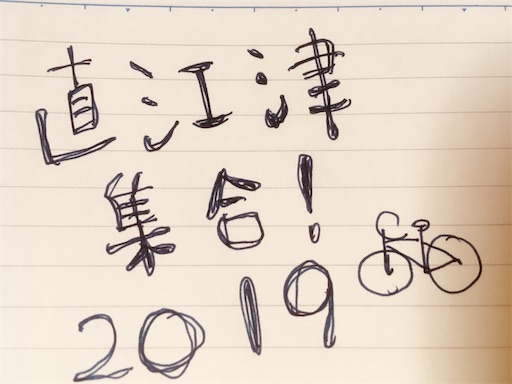 直江津
集合!
2019